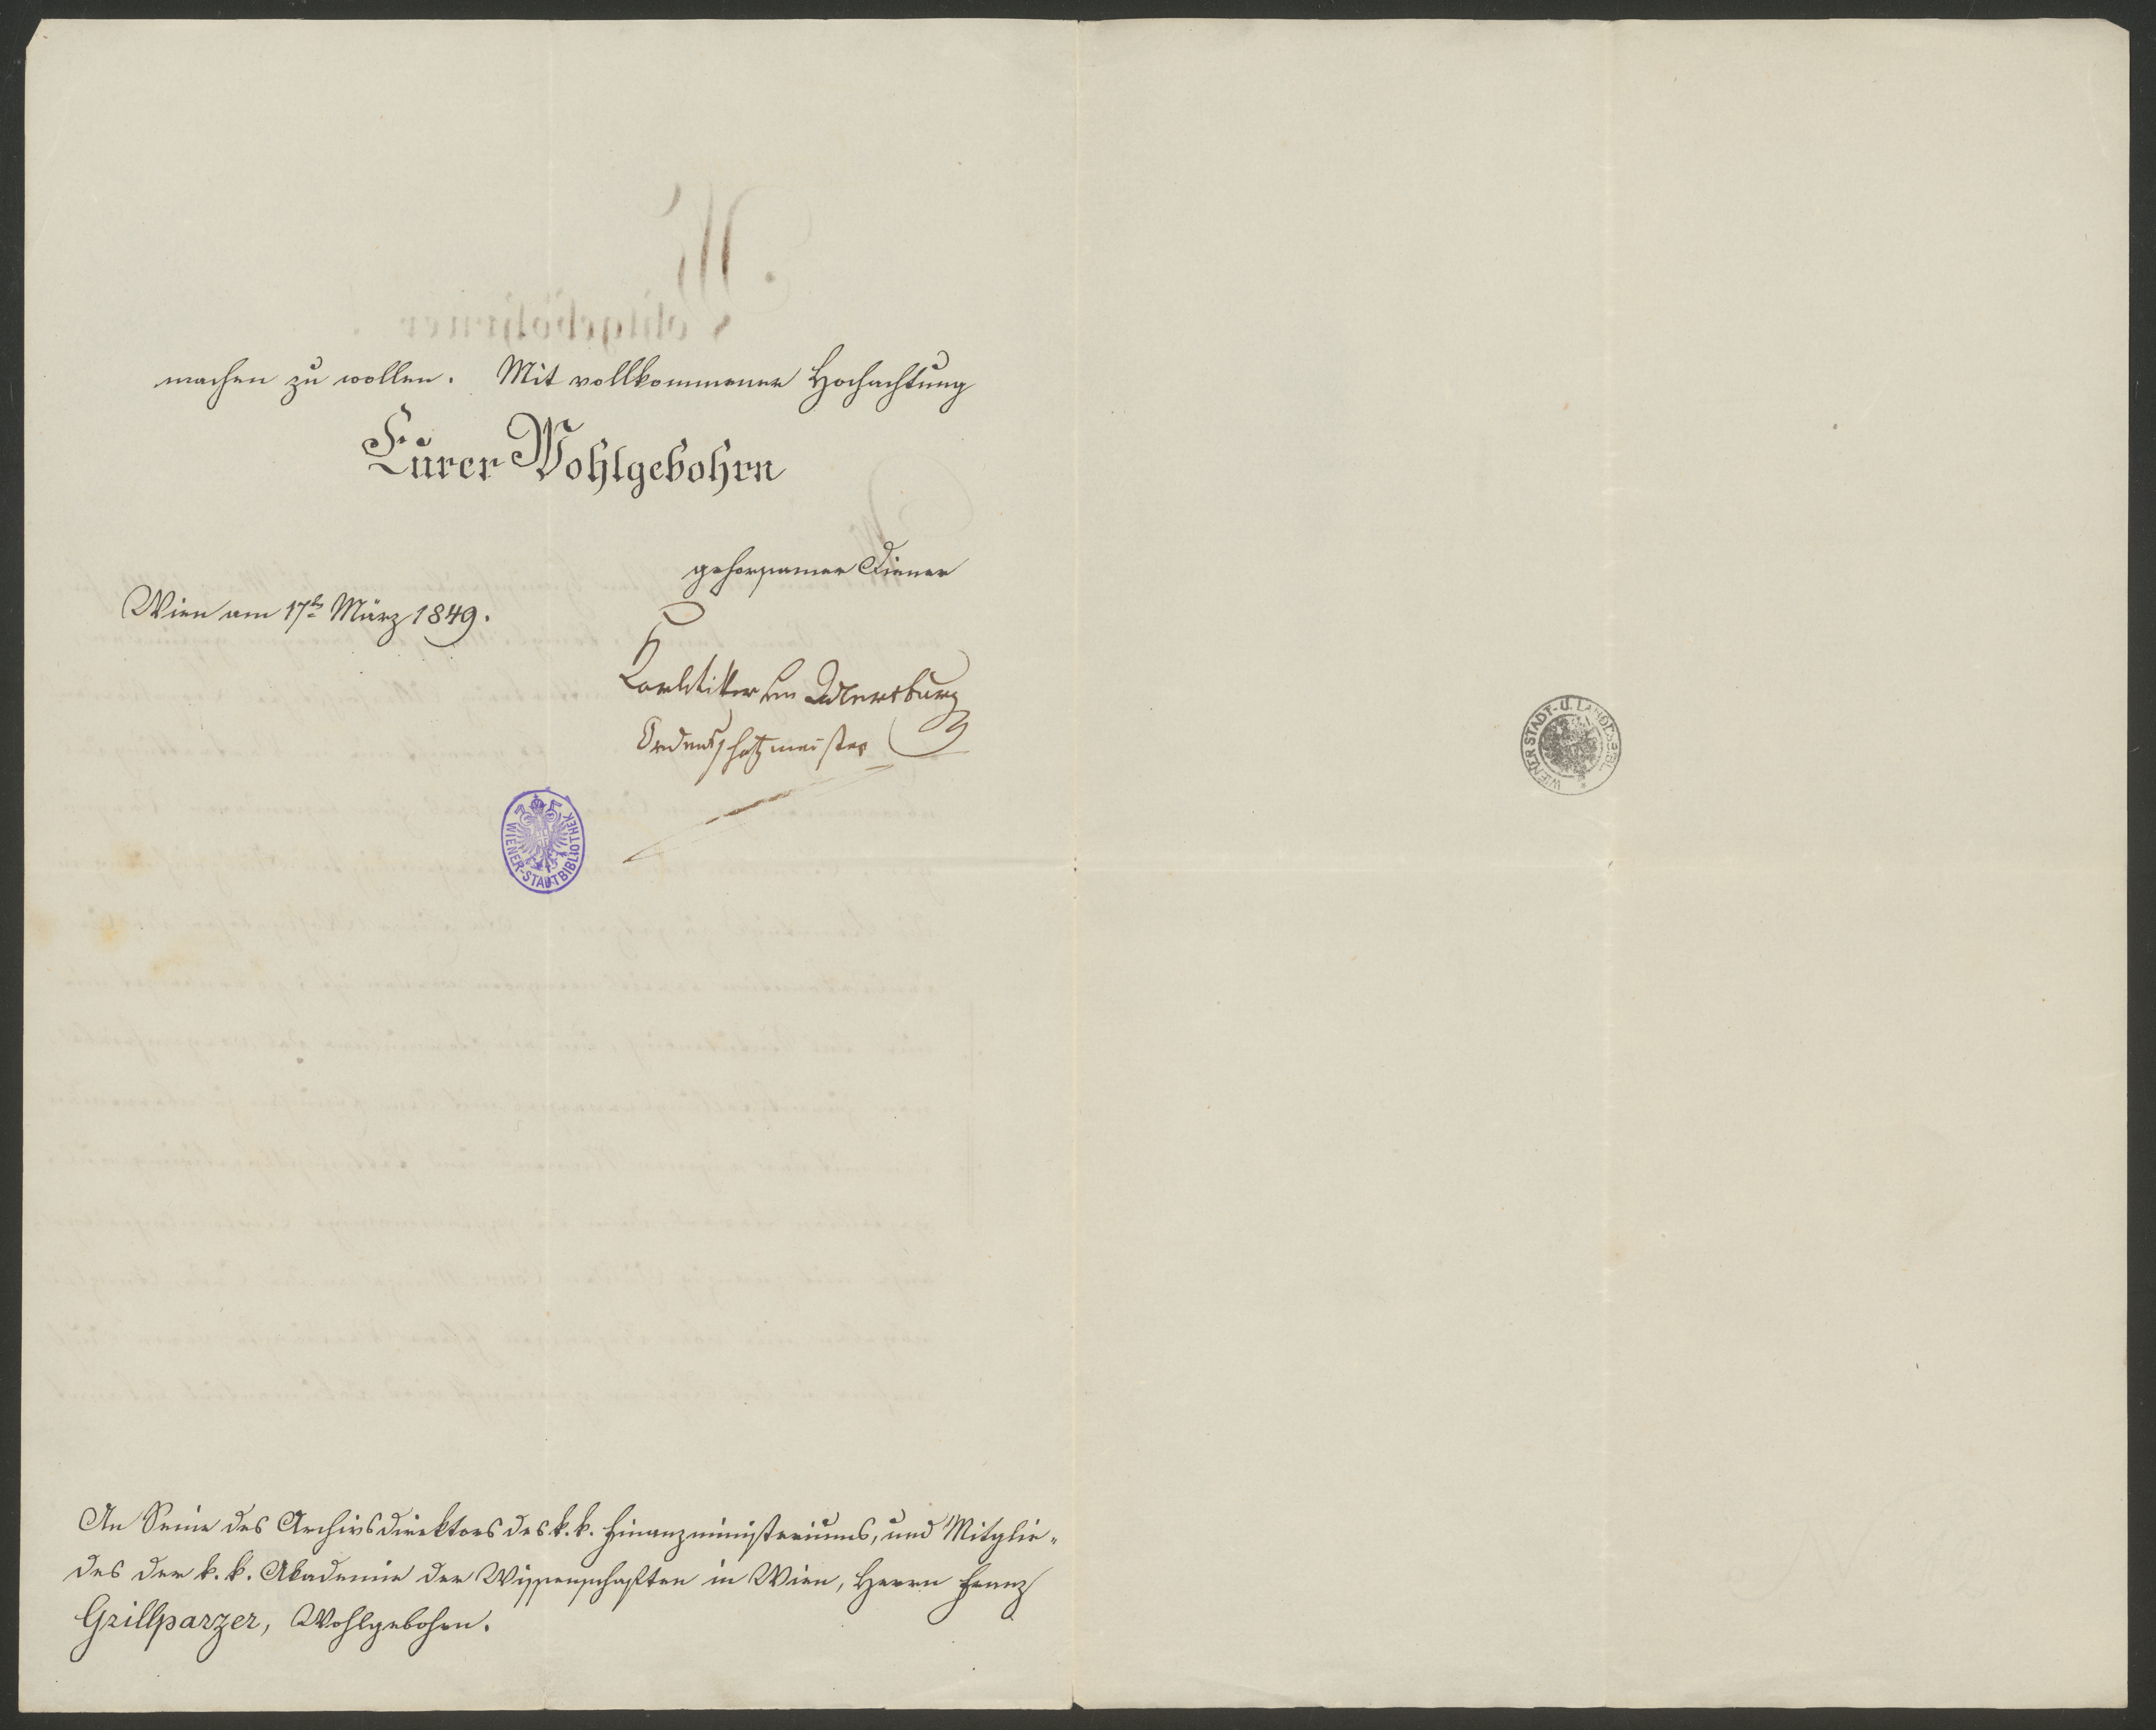 machen zu wollen. Mit vollkommener Hochachtung
Eurer Wohlgebohrn
gehorsamer Diener
Wien am 17t März 1849.
Ordensschatzmeister
WIENER-STADTBIBLIOTHEK
WIENER STADT- U. LANDESBIBL.
An Seine des Archivsdirektors des k. k. Finanzministeriums, und Mitglie-
des der k. k. Akademie der Wissenschaften in Wien, Herrn Franz
Grillparzer, Wohlgebohrn.